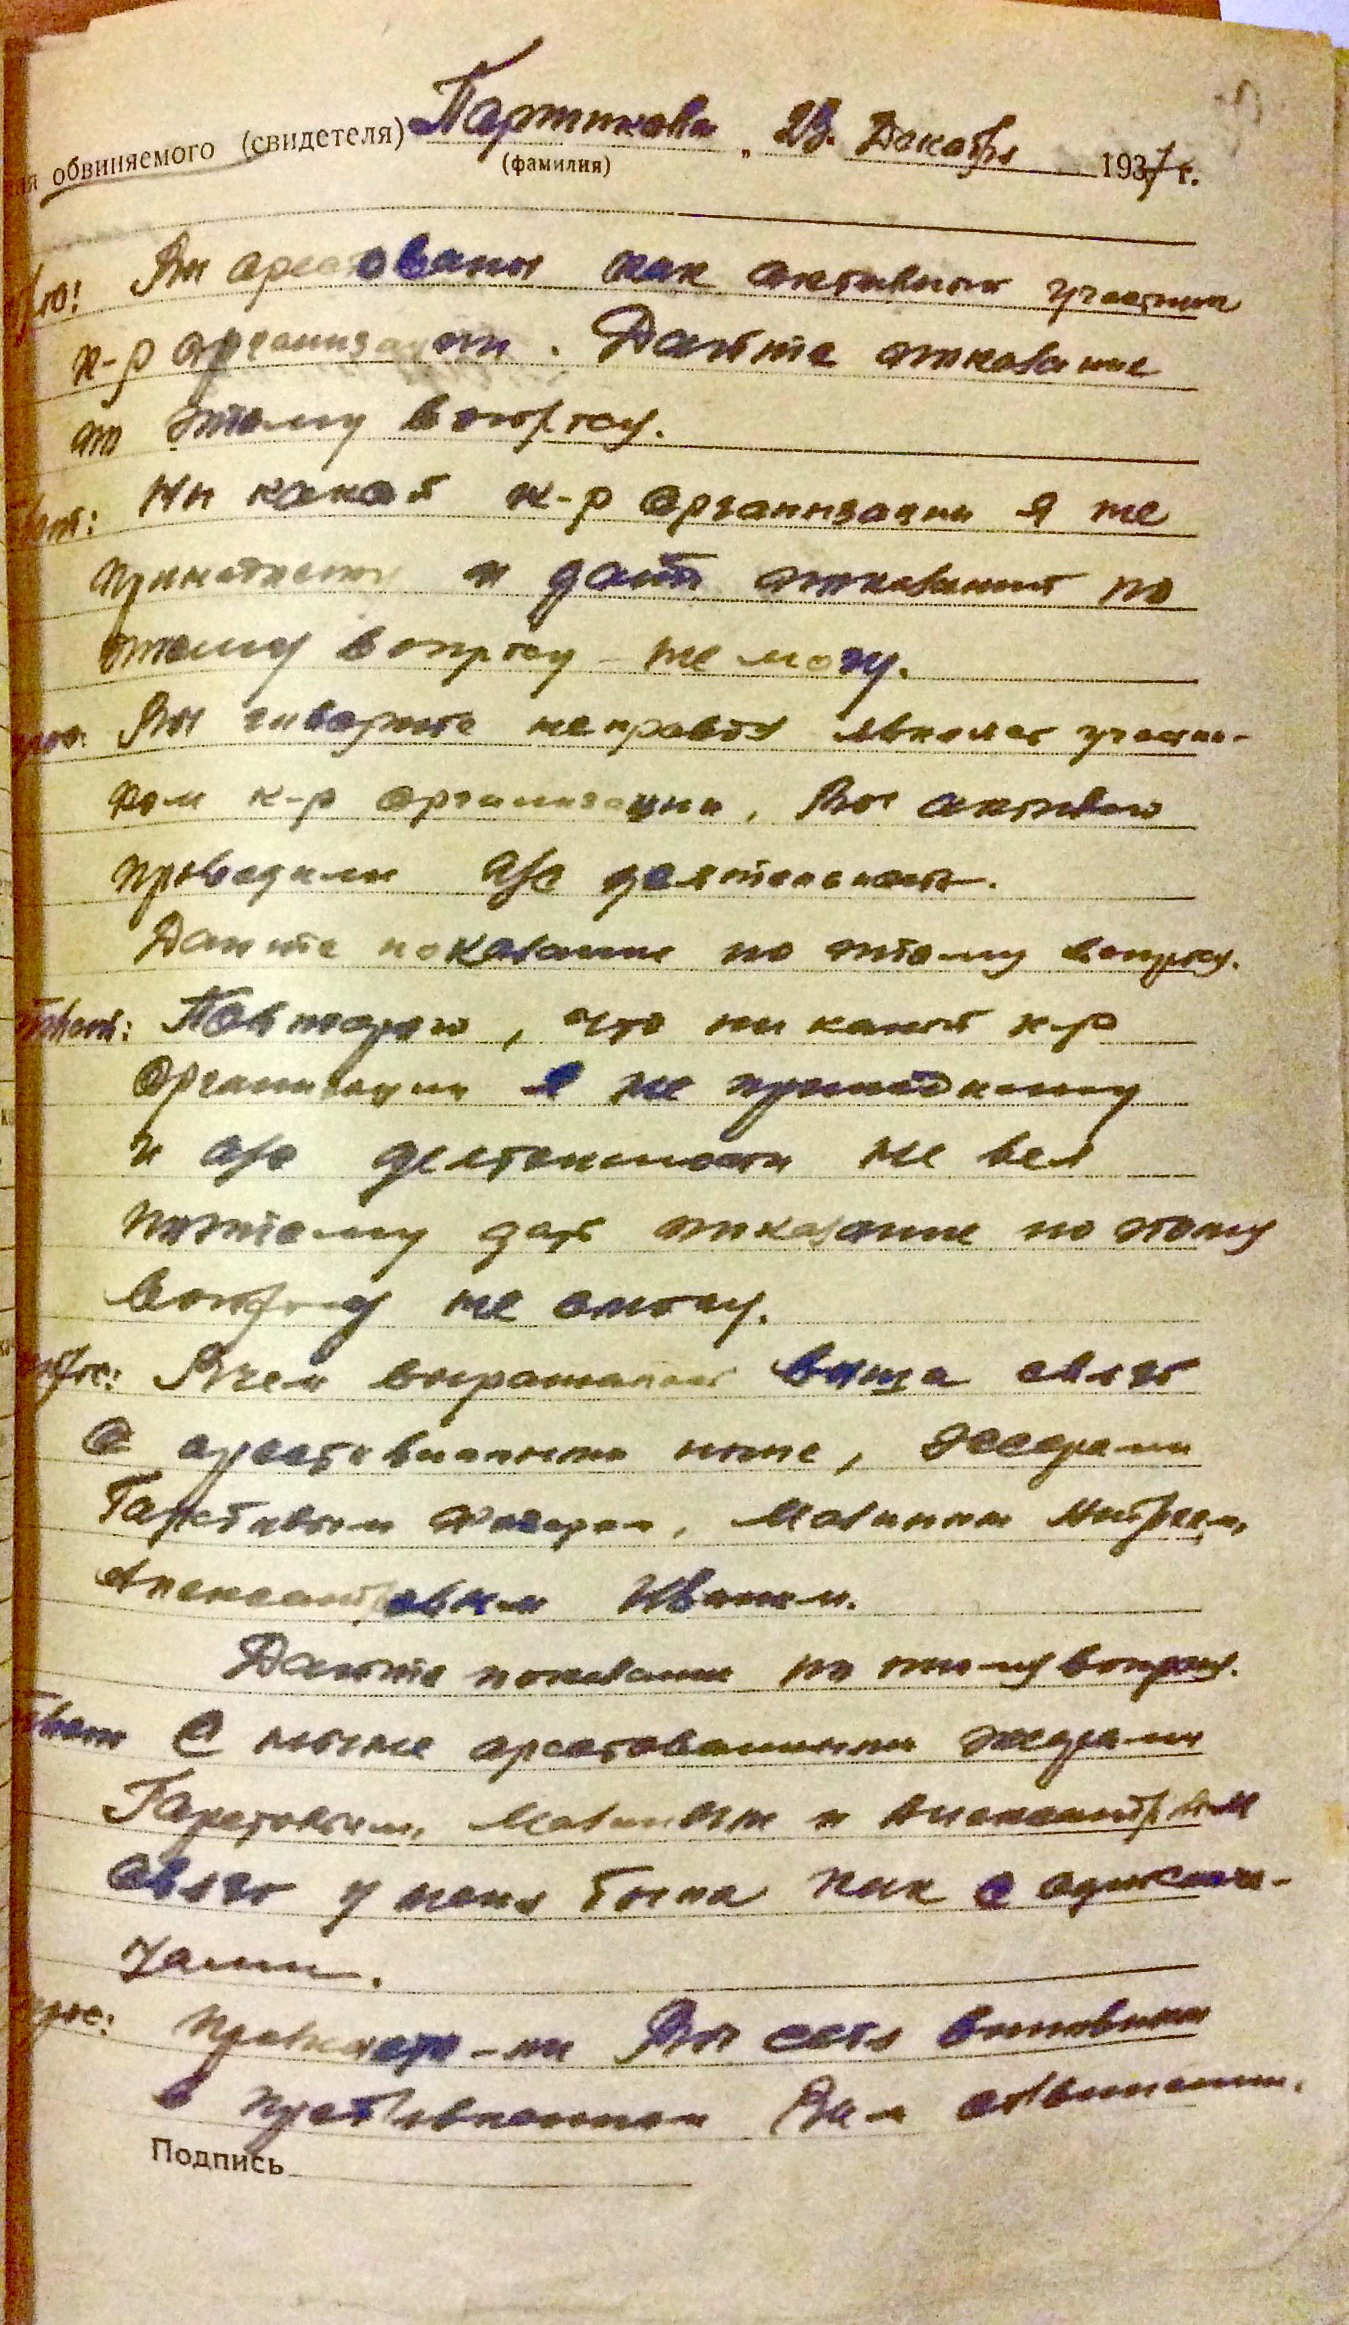 обвиняемого (свидетеля) Портнкова „23. Декабря 1937 г.
(фамилия)
Вы арестованы как активный участник
к-р организации. Дайте показание
по этому вопросу.
Ни какой к-р организации я не
и дать показаний по
этому вопросу не могу.
Вы говорите неправду являясь участни-
ком к-р организации, Вы активно
проводили а/с деятельность.
Дайте показание по этому вопросу.
Ответ: Повторяю, что ни какой к-р
организации я не принадлежу
и а/с деятельности не вел
поэтому дать показание по этому
вопросу не могу.
Вчем выражалась ваша связь
с арестованными ныне, эсерами
Андреем,
Александровым Иваном.
Дайте показание по этому вопросу.
Ответ С ныне арестованными эсерами
и Александровым
связь у меня была как с односель-
чами.
Признаете-ли Вы себя виновным
в предъявленном Вам обвинении.
Подпись